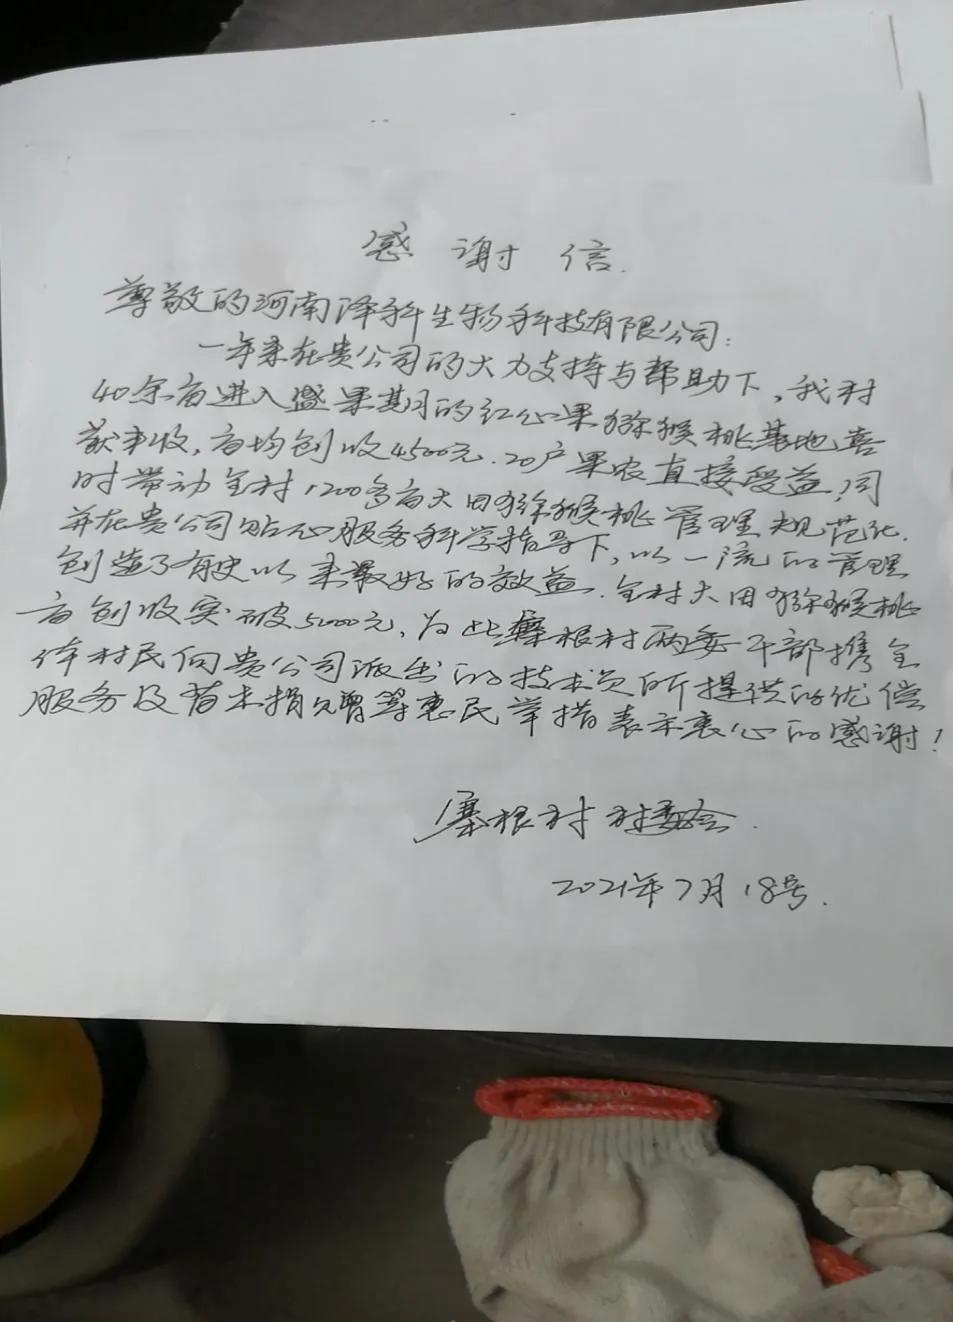 感谢信.
尊敬的河南泽科生物科技有限公司:
一年来在贵公司的大力支持与帮助下,我村
40余亩进入盛果期的红心果猕猴桃基地喜
获丰收,亩均创收4500元.20户果农直接受益,同
时带动全村1200多亩大田猕猴桃管理规范化.
并在贵公司贴心服务科学指导下,以一流的管理
创造了有史以来最好的效益.全村大田猕猴桃
亩创收突破5000元,为此寨根村两委干部携全
体村民向贵公司派出的技术员所提供的优偿
服务及苗木捐赠等惠民举措表示衷心的感谢!
寨根村村委会.
2021年7月18号.